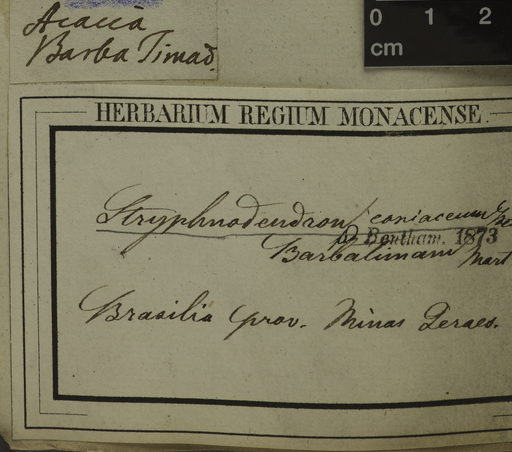 Acacia
Barba Timaõ.
0 1 2
cm
HERBARIUM REGIUM MONACENSE.
Stryphnodendron coriaceum
Bentham. 1873
Barbatimam Mart
Brasilia prov. Minas Geraes.